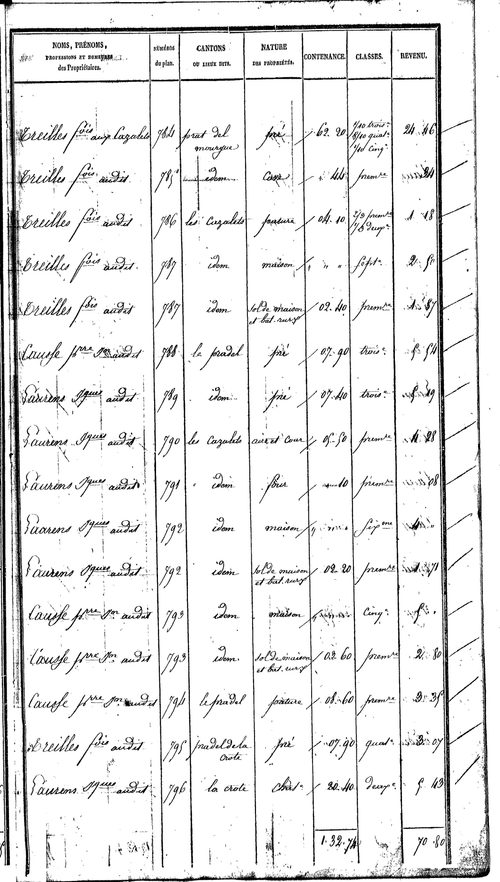 NOMS, PRÉNOMS, PROFESSIONS ET DEMEURES des Propriétaires. NUMÉROS du plan. CANTONS OU LIEUX DITS. NATURE DES PROPRIÉTÉS. CONTENANCE. CLASSES. REVENU.
Treilles fois aux Cazalets 784 prat del mourgue pré 62. 20 24. 46
Treilles fois audit 785 idem 44 premre 24
Treilles fois audit 786 les Cazalets pature 04. 10 1. 18
Treilles fois audit 787 idem maison " " "
Treilles fois audit 787 idem sol de maison et bat. rural 02. 40 premre 1. 87
Causse prre Jn audit 788 le pradel pré 07. 90 trois. 5. 54
Laurens Jques audit 789 idem pré 07. 40 trois. 5. 19
Laurens Jques audit 790 les Cazalets aire et cour 05. 50 premre 4. 28
Laurens Jques audit 791 idem four 10 premre 08
Laurens Jques audit 792 idem maison " " " sixeme
Laurens Jques audit 792 idem sol de maison et bat. rural 02. 20 premre 1. 71
Causse prre Jn audit 793 idem maison " " " cinq. 5.
Causse prre Jn audit 793 idem sol de maison et bat. rural 03. 60 premre 2. 80
Causse prre Jn audit 794 le pradel pature 08. 60 premre
Treilles fois audit 795 pradel de la crote pré 07. 90 quat. 07
Laurens Jques audit 796 la crote 20. 40 deux. 5. 43
1. 32. 74 70. 80